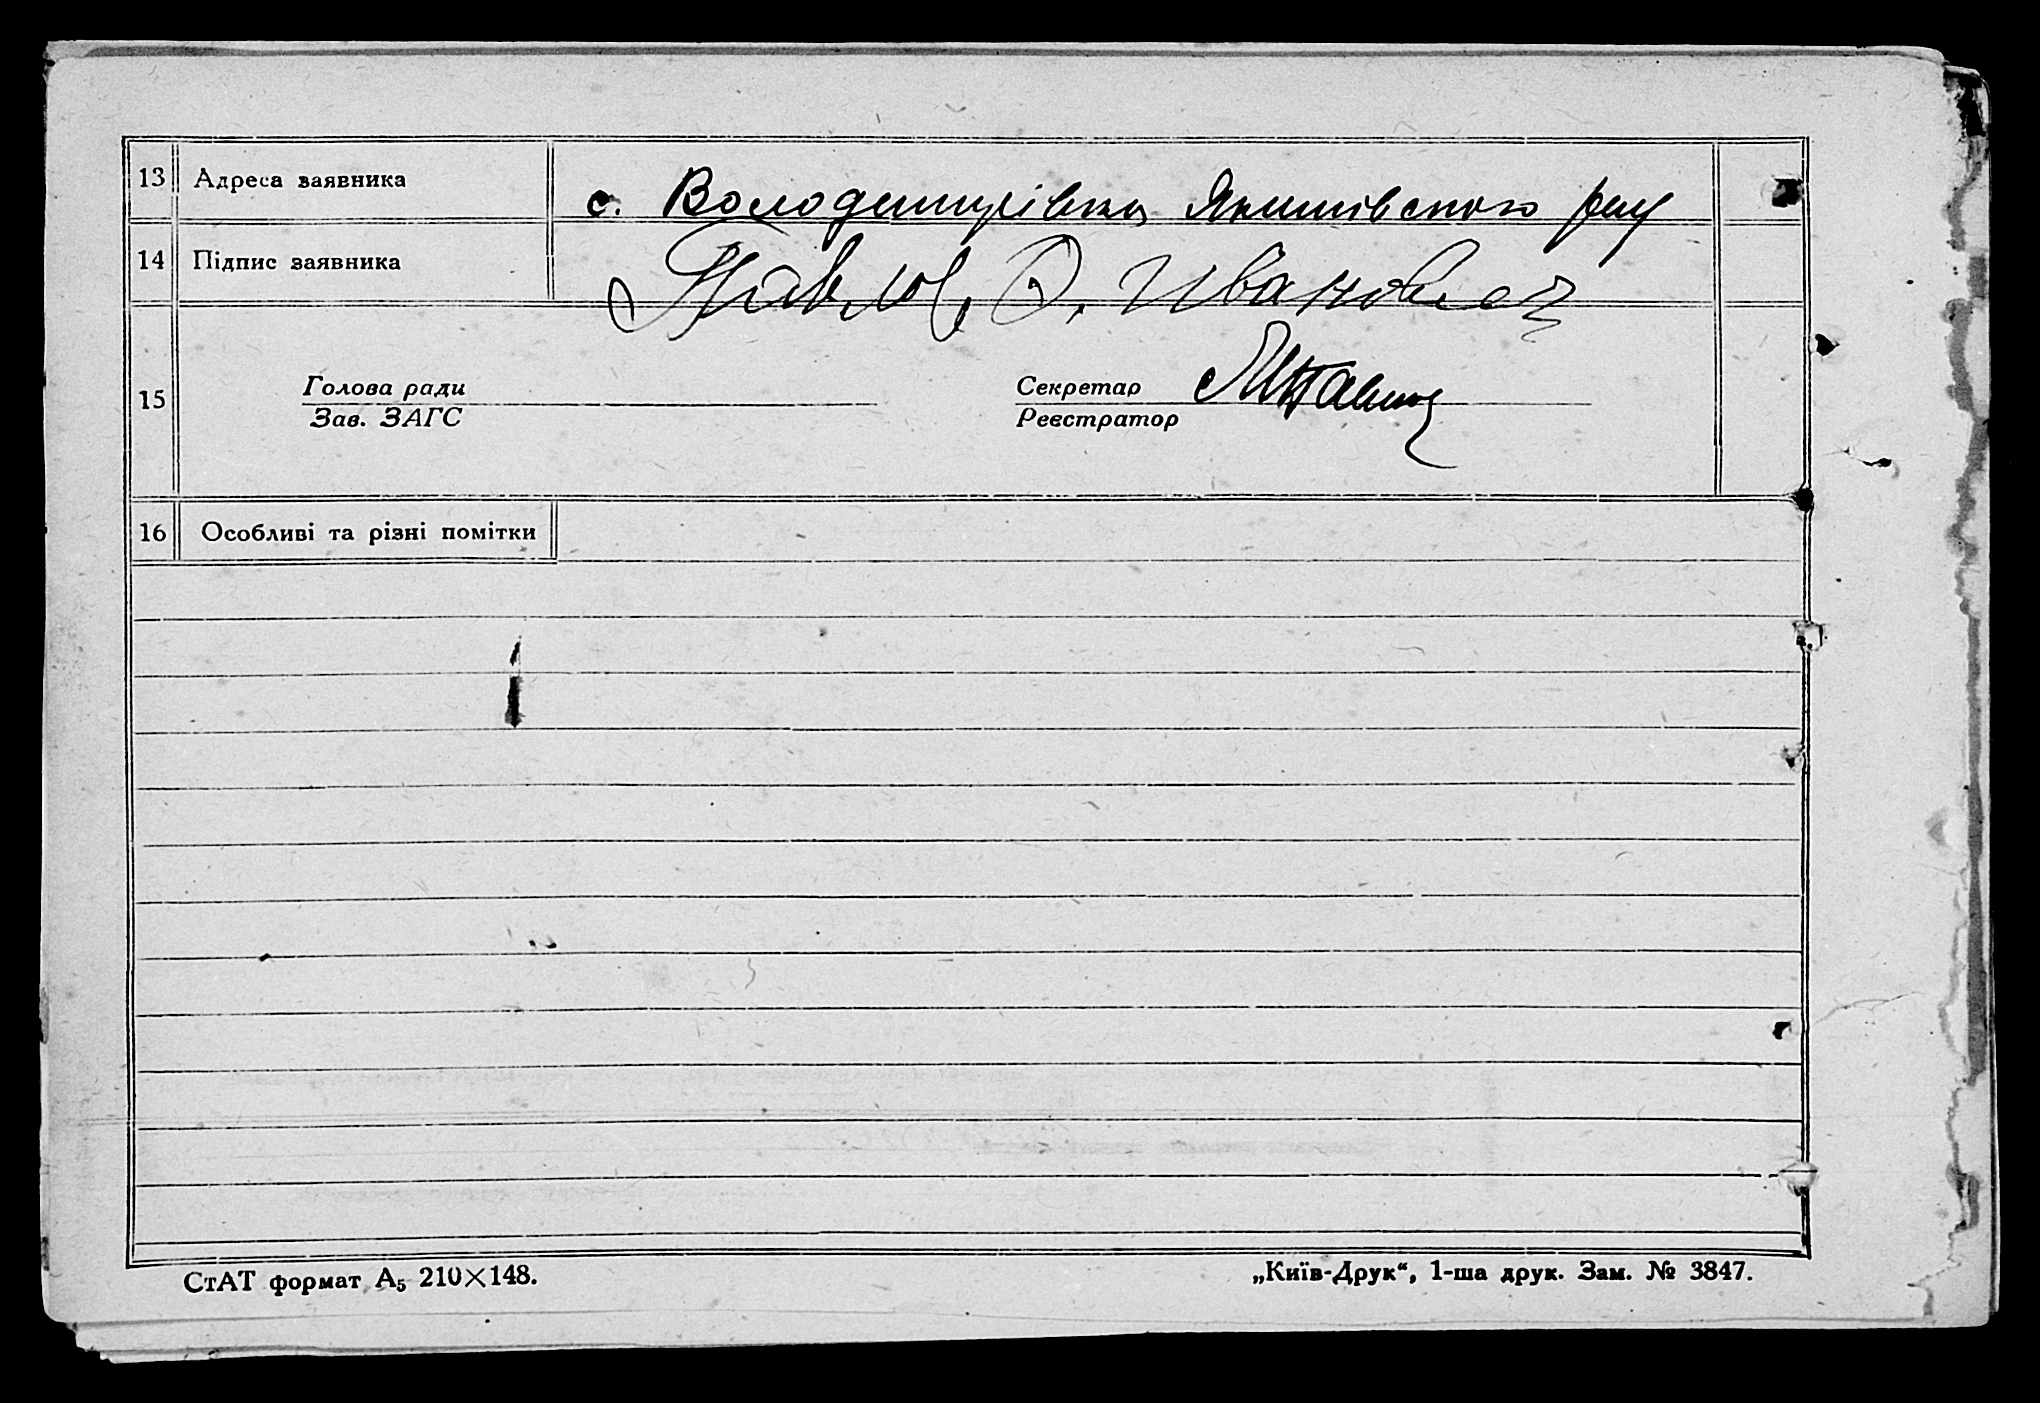 13 Адреса заявника с. Володимирівка Якимівского рну
14 Підпис заявника Павлов, О, Иванович
15 Голова ради Секретар
Зав. ЗАГС Реєстратор
16 Особливі та різні помітки
СтАТ формат А₅ 210×148. „Київ-Друк“, 1-ша друк. Зам. № 3847.